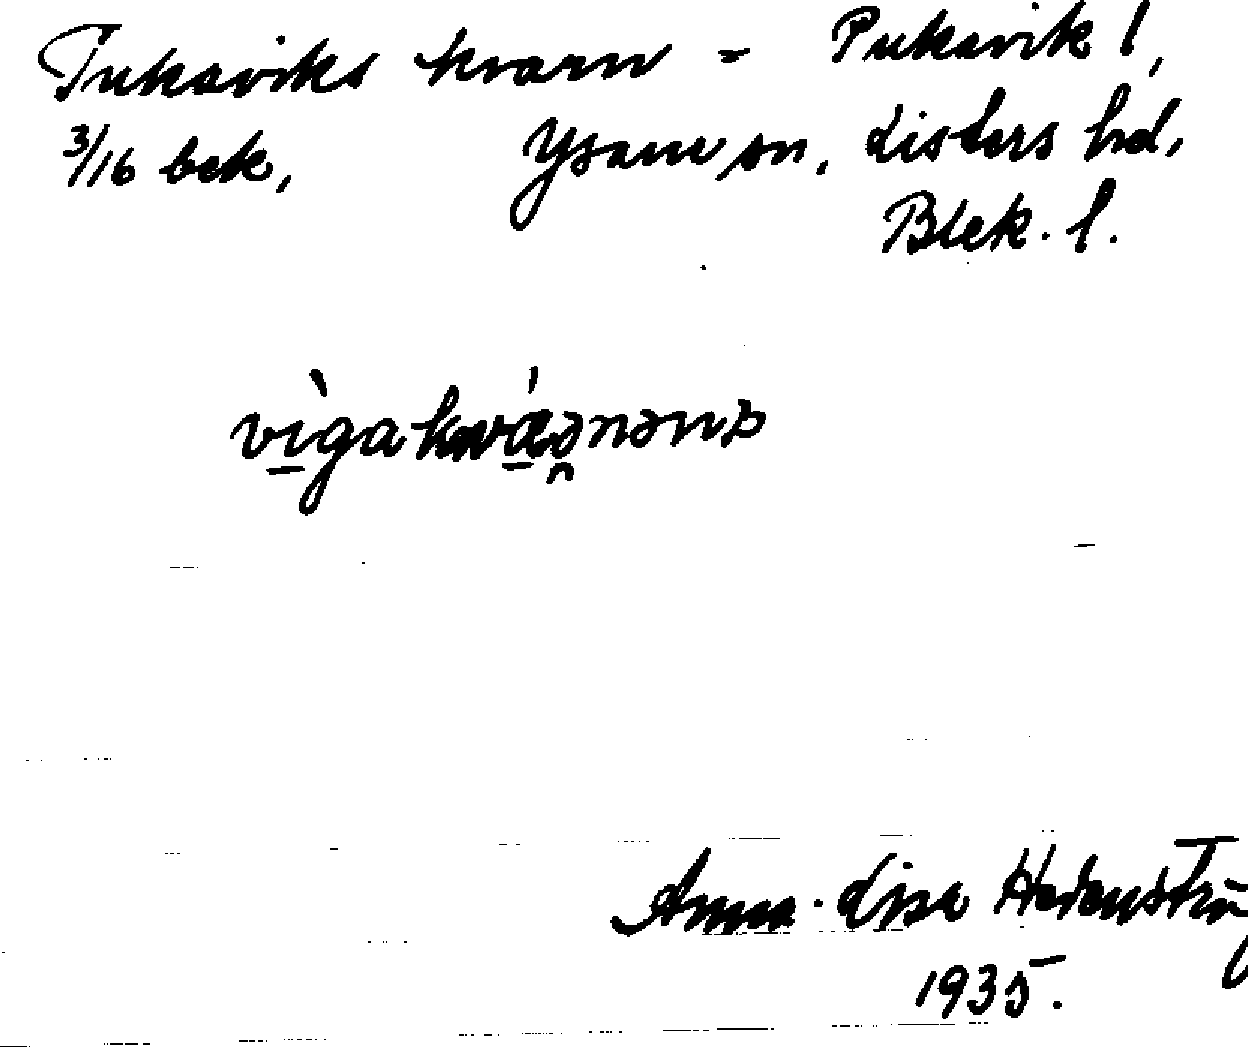 Pukaviks kvarn - Pukavik 1,
3/16 bek, Ysane sn, Listers hd,
Blek. l.
Anna-Lisa
1935.